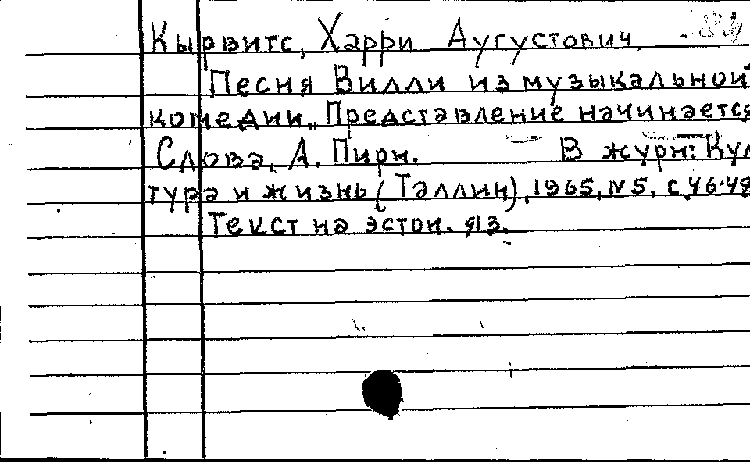 Кырвитс, Харри Аугустович.
Песня Вилли из музыкальной
комедии „Представление начинается
Слова А. Пирн. В журн: Куль
тура и жизнь (Таллин), 1965, N5, с. 46-48
Текст на эстон. яз.